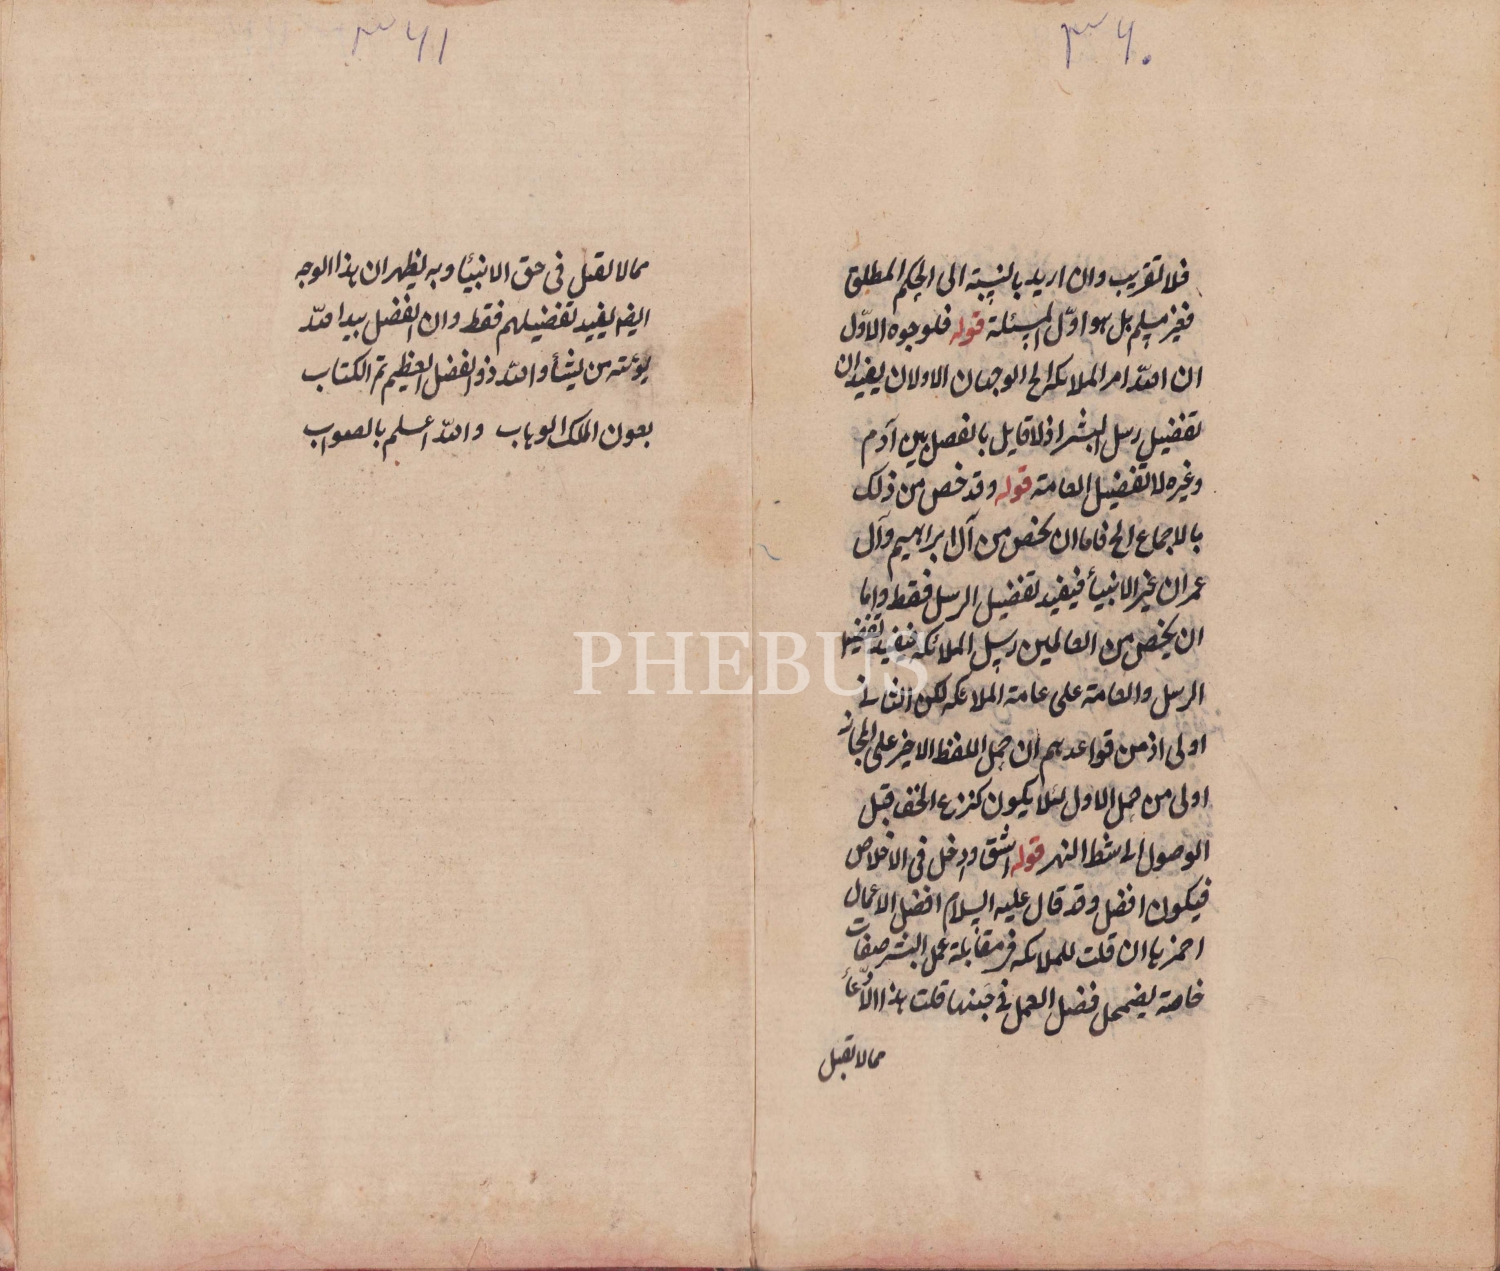 ٣٦٠
فلا تقريب وان اريد بالنسبة الى الحكم المطلق
فغير مسلم بل هو اول المسئلة قوله فلوجوه الاوّل
ان الله امر الملائكة الخ الوجهان الاولان يفيدان
تفضيل رسل البشر اذ لا قايل بالفصل بين آدم
وغيره لا تفضيل العامة قوله وقد خص من ذلك
بالاجماع الخ فاما ان يخص من آل ابراهيم وآل
عمران غير الانبيأ فيفيد تفضيل الرسل فقط واما
ان يخص من العالمين رسل الملائكة فيفيد تفضيل
الرسل والعامة على عامة الملائكة لكن الثاني
اولى اذ من قواعدهم ان حمل اللفظ الاخير على المجاز
اولى من حمل الاول لئلا يكون كنزع الخف قبل
الوصول الى شط النهر قوله اشق وادخل في الاخلاص
فيكون افضل وقد قال عليه السلام افضل الاعمال
احمزها ان قلت للملائكة في مقابلة عمل البشر صفات
خاصة يضمحل فضل العمل في جنبها قلت هذا الادّعأ
مما لا تقبل
٣٦١
مما لا تقبل في حق الانبيأ وبه يظهر ان هذا الوجه
ايضا يفيد تفضيلهم فقط وان الفضل بيد الله
يؤته من يشأ والله ذو الفضل العظيم تم الكتاب
بعون الملك الوهاب والله اعلم بالصواب
PHEBUS